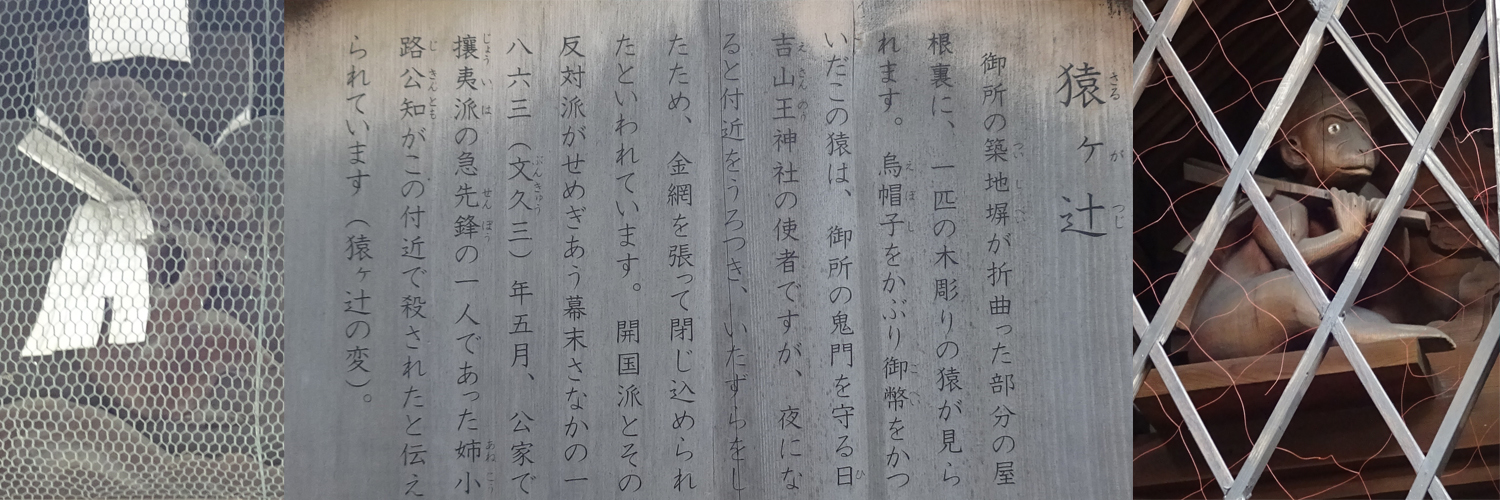 猿ヶ辻
御所の築地塀が折曲った部分の屋
根裏に、一匹の木彫りの猿が見ら
れます。烏帽子をかぶり御幣をかつ
いだこの猿は、御所の鬼門を守る日
吉山王神社の使者ですが、夜にな
ると付近をうろつき、いたずらをし
たため、金網を張って閉じ込められ
たといわれています。開国派とその
反対派がせめぎあう幕末さなかの一
八六三（文久三）年五月、公家で
攘夷派の急先鋒の一人であった姉小
路公知がこの付近で殺されたと伝え
られています（猿ヶ辻の変）。